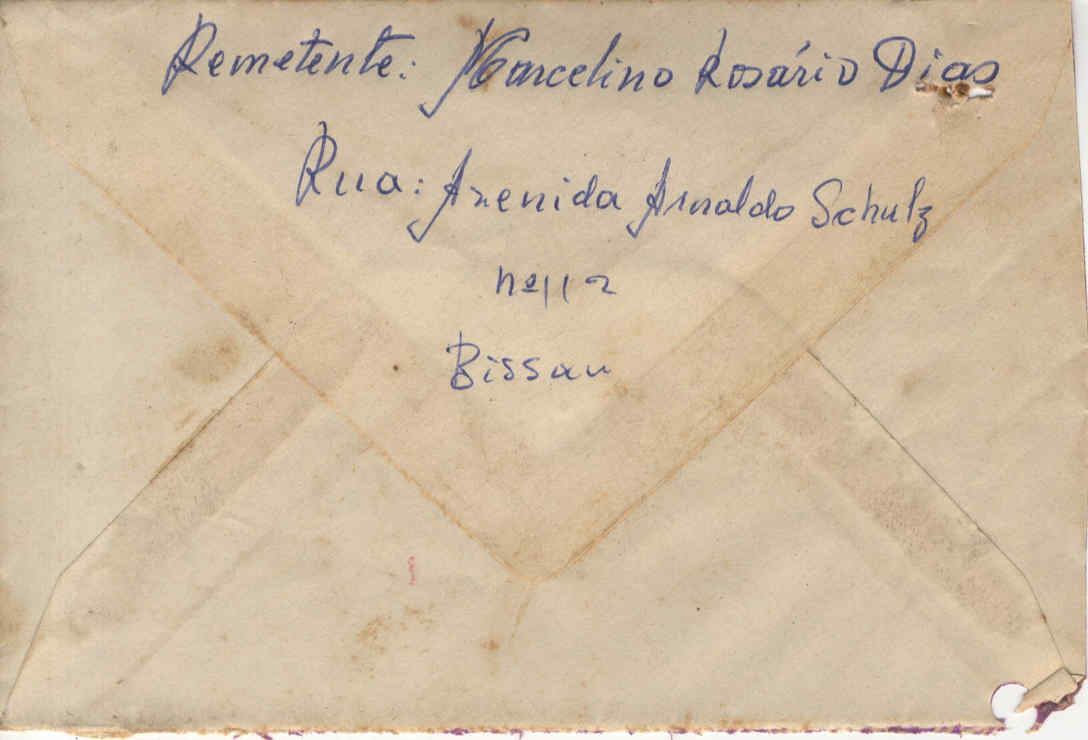 Remetente: Marcelino Rosário Dias
Rua: Avenida Arnaldo Schulz
nº112
Bissau